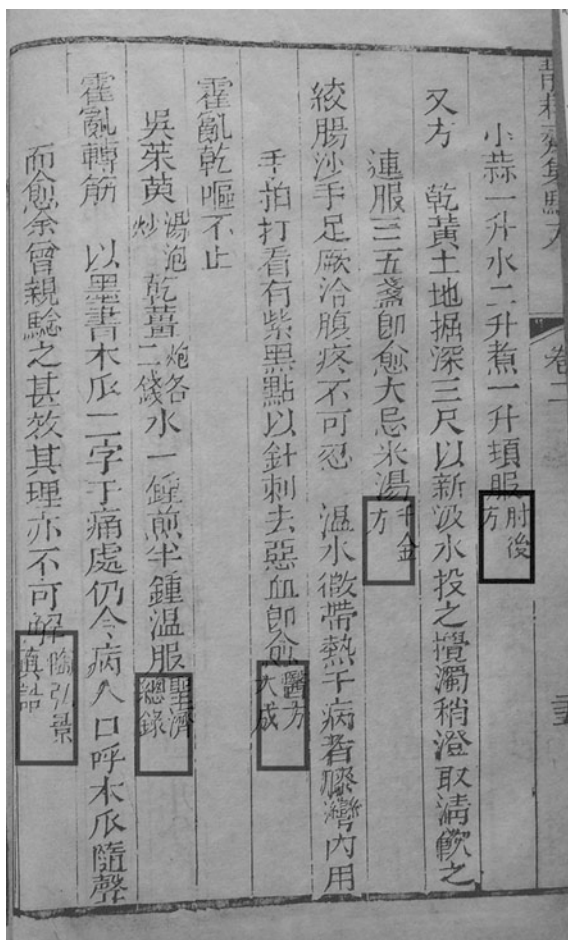 卷二
小蒜一升水二升煮一升頓服肘後方
又方 乾黃土地掘深三尺以新汲水投之攪濁稍澄取清飲之
連服三五盞即愈大忌米湯千金方
絞腸沙手足厥冷腹疼不可忍 溫水微帶熱于病者膝灣內用
手拍打看有紫黑點以針刺去惡血即愈醫方大成
霍亂乾嘔不止
吳茱萸湯泡炒乾薑炮各二錢水一鍾煎半鍾溫服聖濟總錄
霍亂轉筋 以墨書木瓜二字于痛處仍令病人口呼木瓜隨聲
而愈余曾親騐之甚效其理亦不可解陶弘景真誥